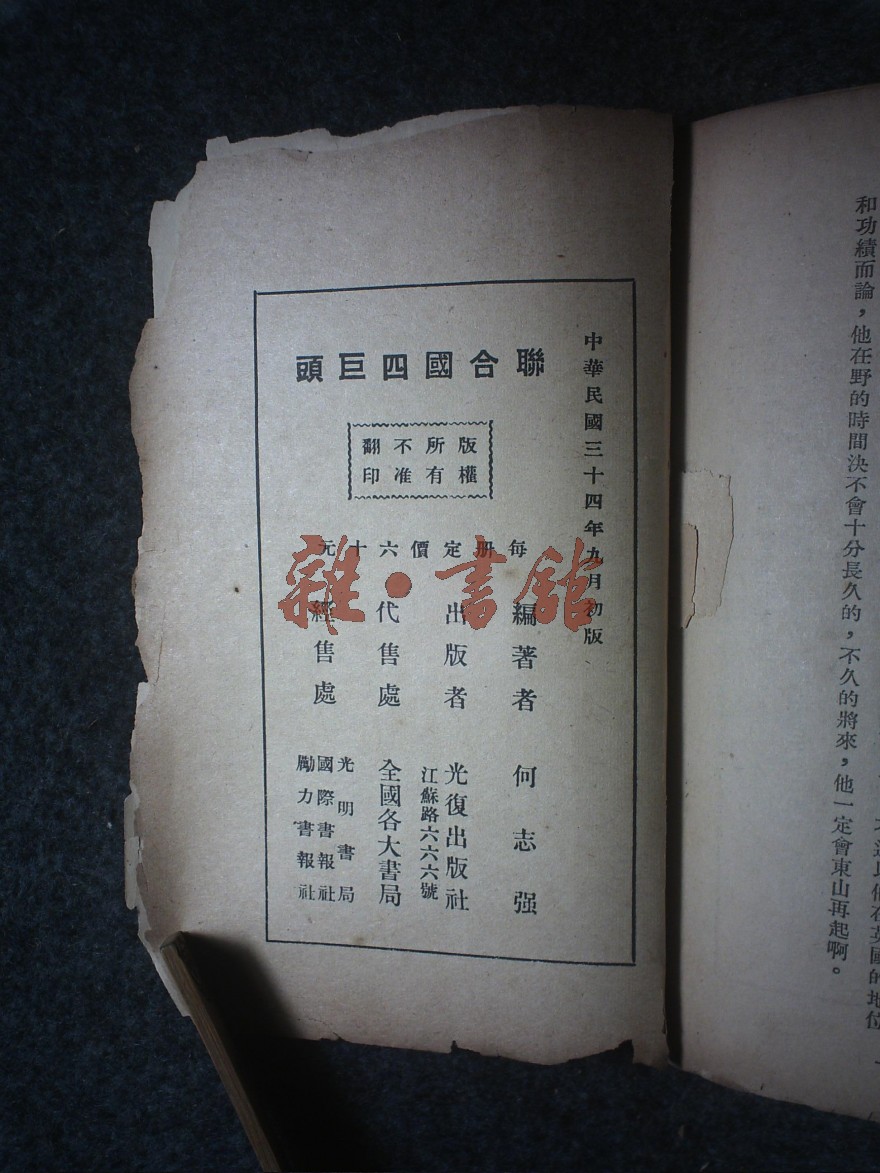 和功績而論，他在野的時間決不會十分長久的，不久的將來，他一定會東山再起啊。
中華民國三十四年九月初版
聯合國四巨頭
版權
所有
不准
翻印
每冊定價六十元
編著者 何志强
出版者 光復出版社
江蘇路六六六號
代售處 全國各大書局
經售處
光明書局
國際書報社
勵力書報社
雜·書館